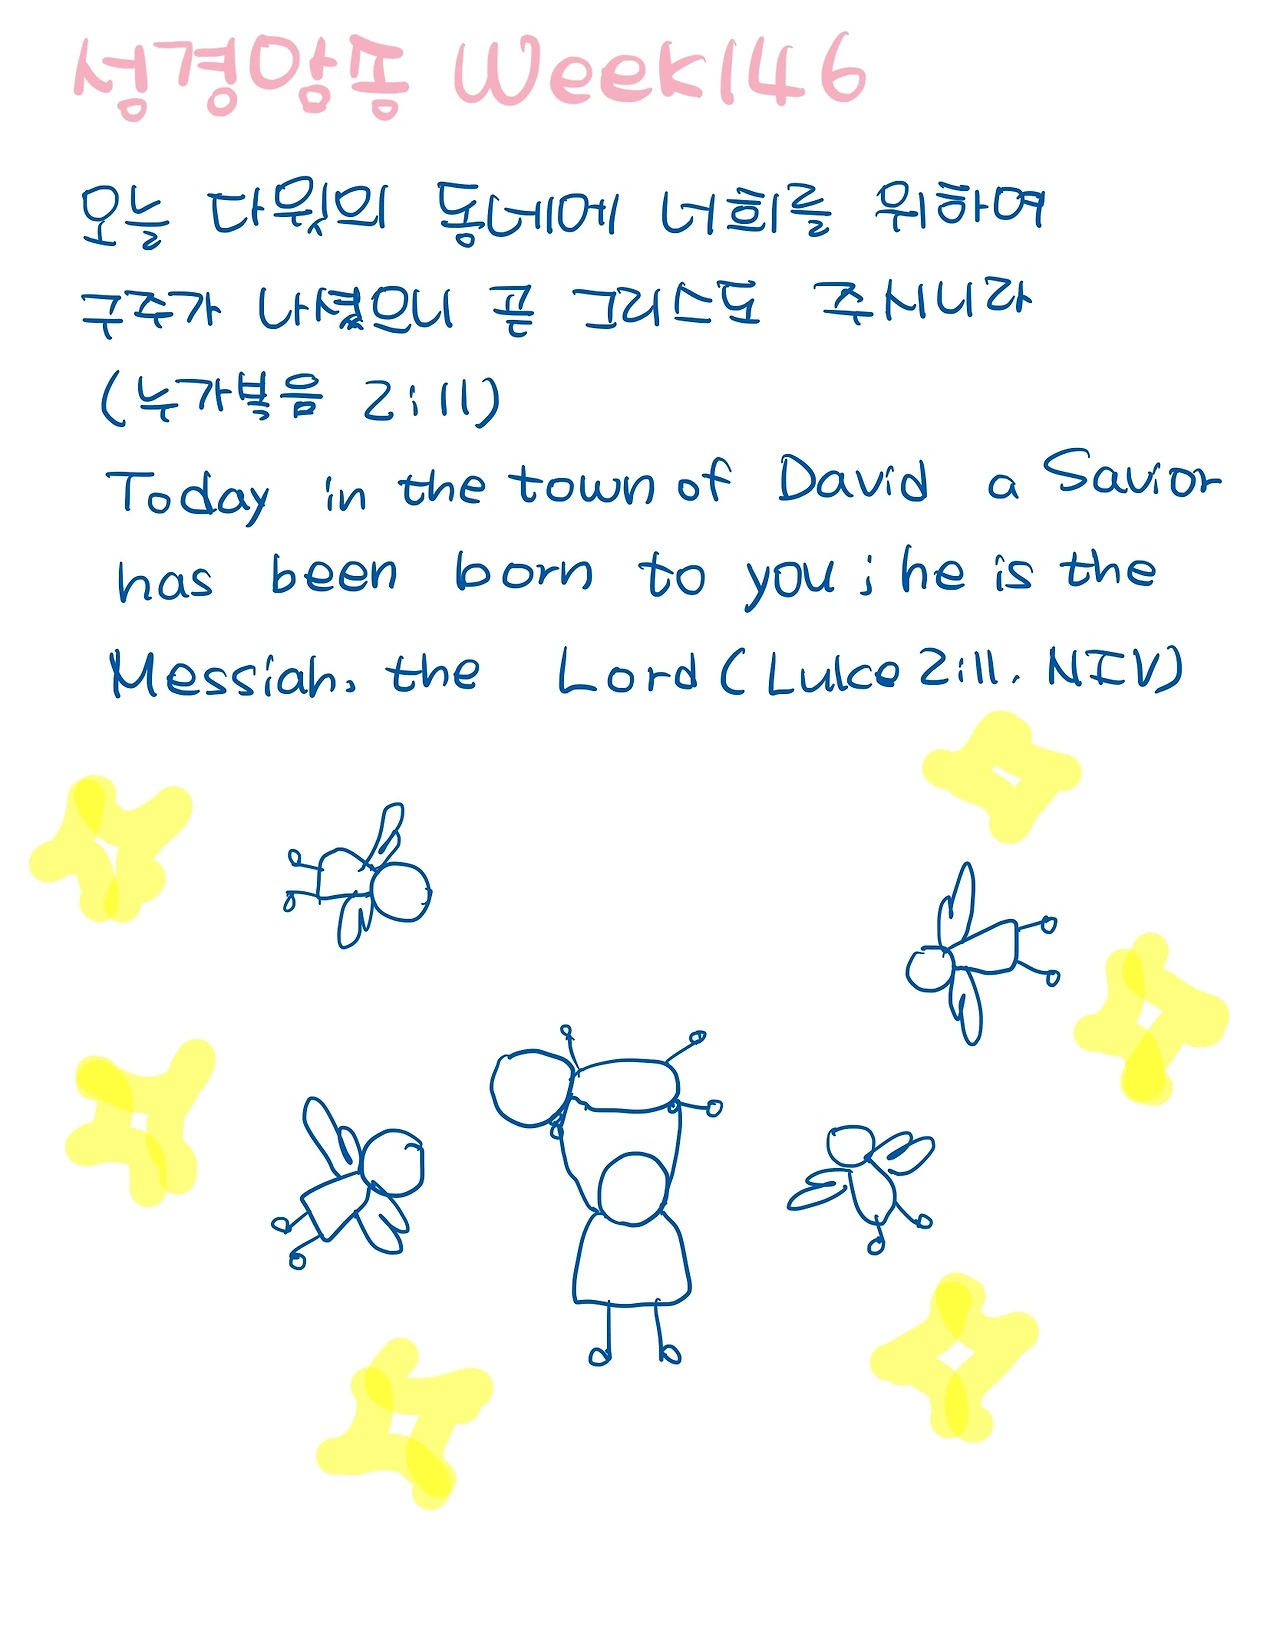 성경암송 Week146
오늘 다윗의 동네에 너희를 위하여
구주가 나셨으니 곧 그리스도 주시니라
(누가복음 2:11)
Today in the town of David a Savior
has been born to you; he is the
Messiah, the Lord (Luke 2:11, NIV)